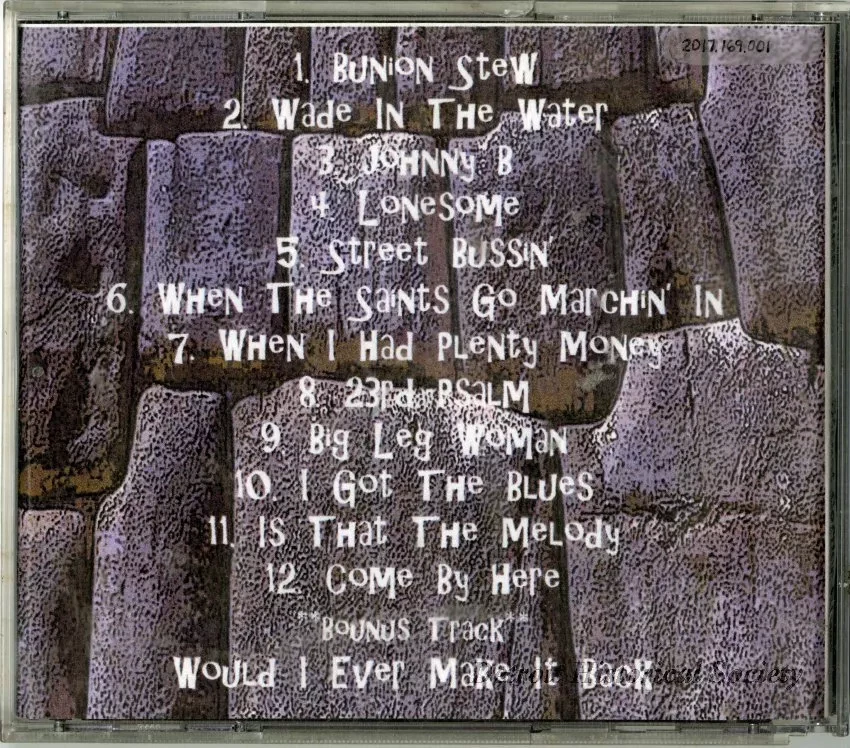 2017.169.001
1. Bunion Stew
2. Wade In The Water
3. Johnny B
4. Lonesome
5. Street Bussin'
6. When The Saints Go Marchin' In
7. When I Had Plenty Money
8. 23rd Psalm
9. Big Leg Woman
10. I Got The Blues
11. Is That The Melody
12. Come By Here
**Bounus Track**
Would I Ever Make It Back
Society